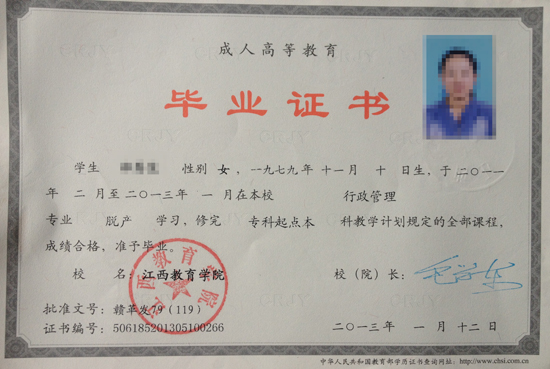 成人高等教育
毕业证书
学生 性别 女，一九七九年 十一月 十 日生，于 二〇一一
年 二 月至 二〇一三年 一 月在本校 行政管理
专业 脱产 学习，修完 专科起点本 科教学计划规定的全部课程，
成绩合格，准予毕业。
校 名：江西教育学院 校（院）长：
批准文号：赣革发79（119）
证书编号：506185201305100266 二〇一三年 一 月 十二 日
中华人民共和国教育部学历证书查询网址：http://www.chsi.com.cn